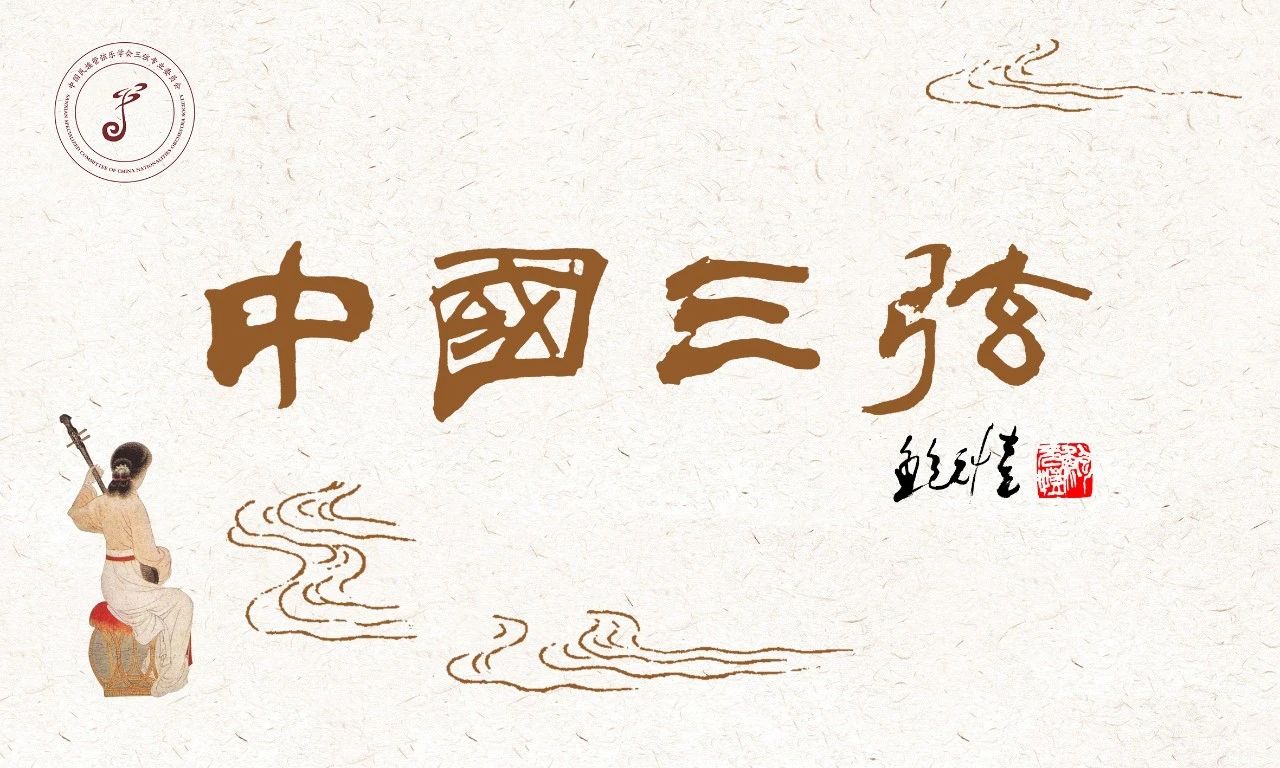 中国民族管弦乐学会三弦专业委员会
SANXIAN SPECIALIZED COMMITTEE OF CHINA NATIONALITIES ORCHESTRA SOCIETY
中國三弦